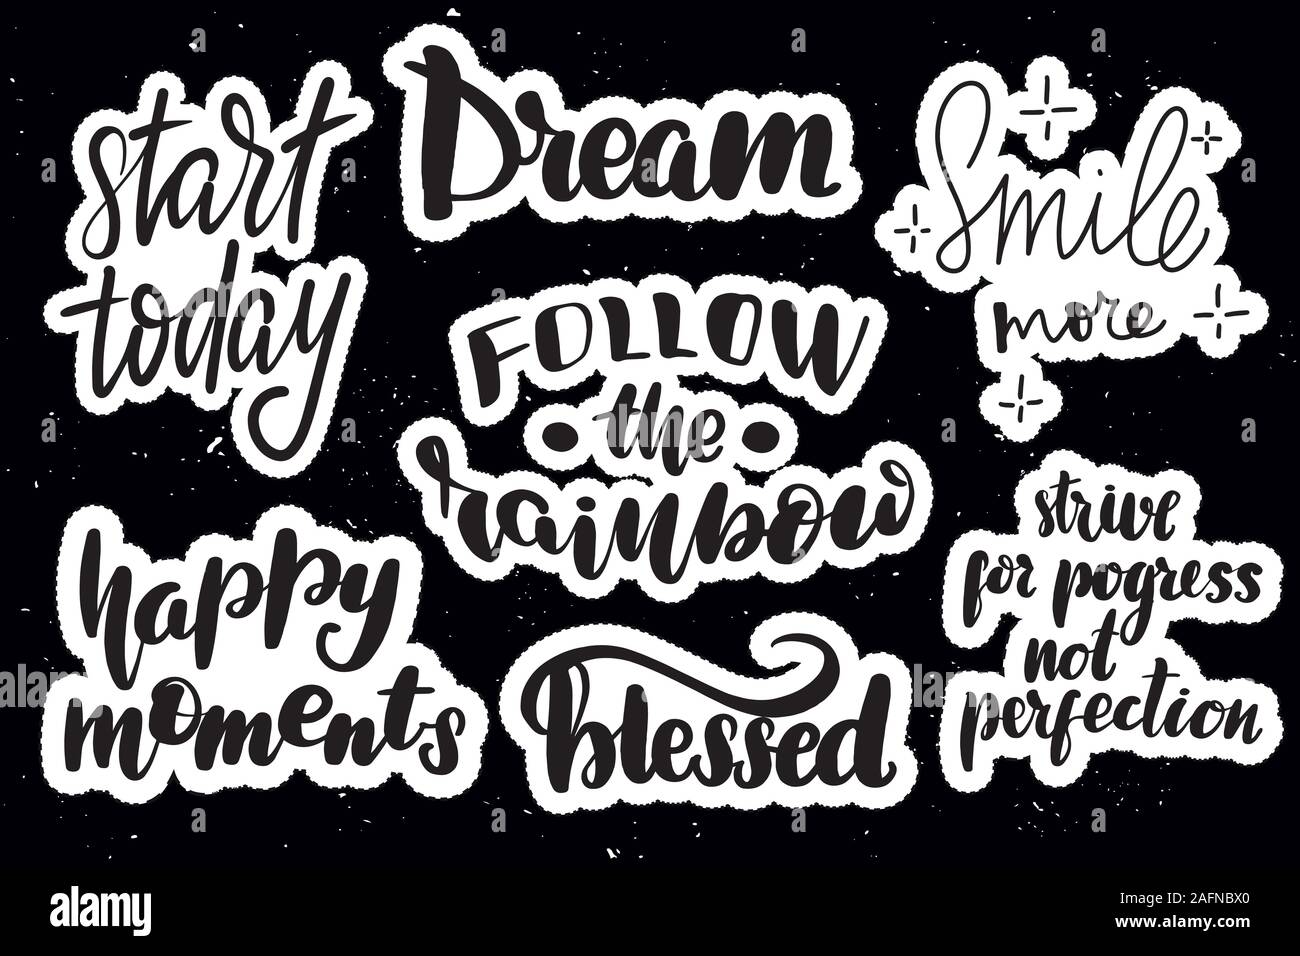 start
today
Dream
Smile
more
FOLLOW
the
rainbow
happy
moments
blessed
strive
for pogress
not
perfection
alamy
Image ID: 2AFNBX0
www.alamy.com